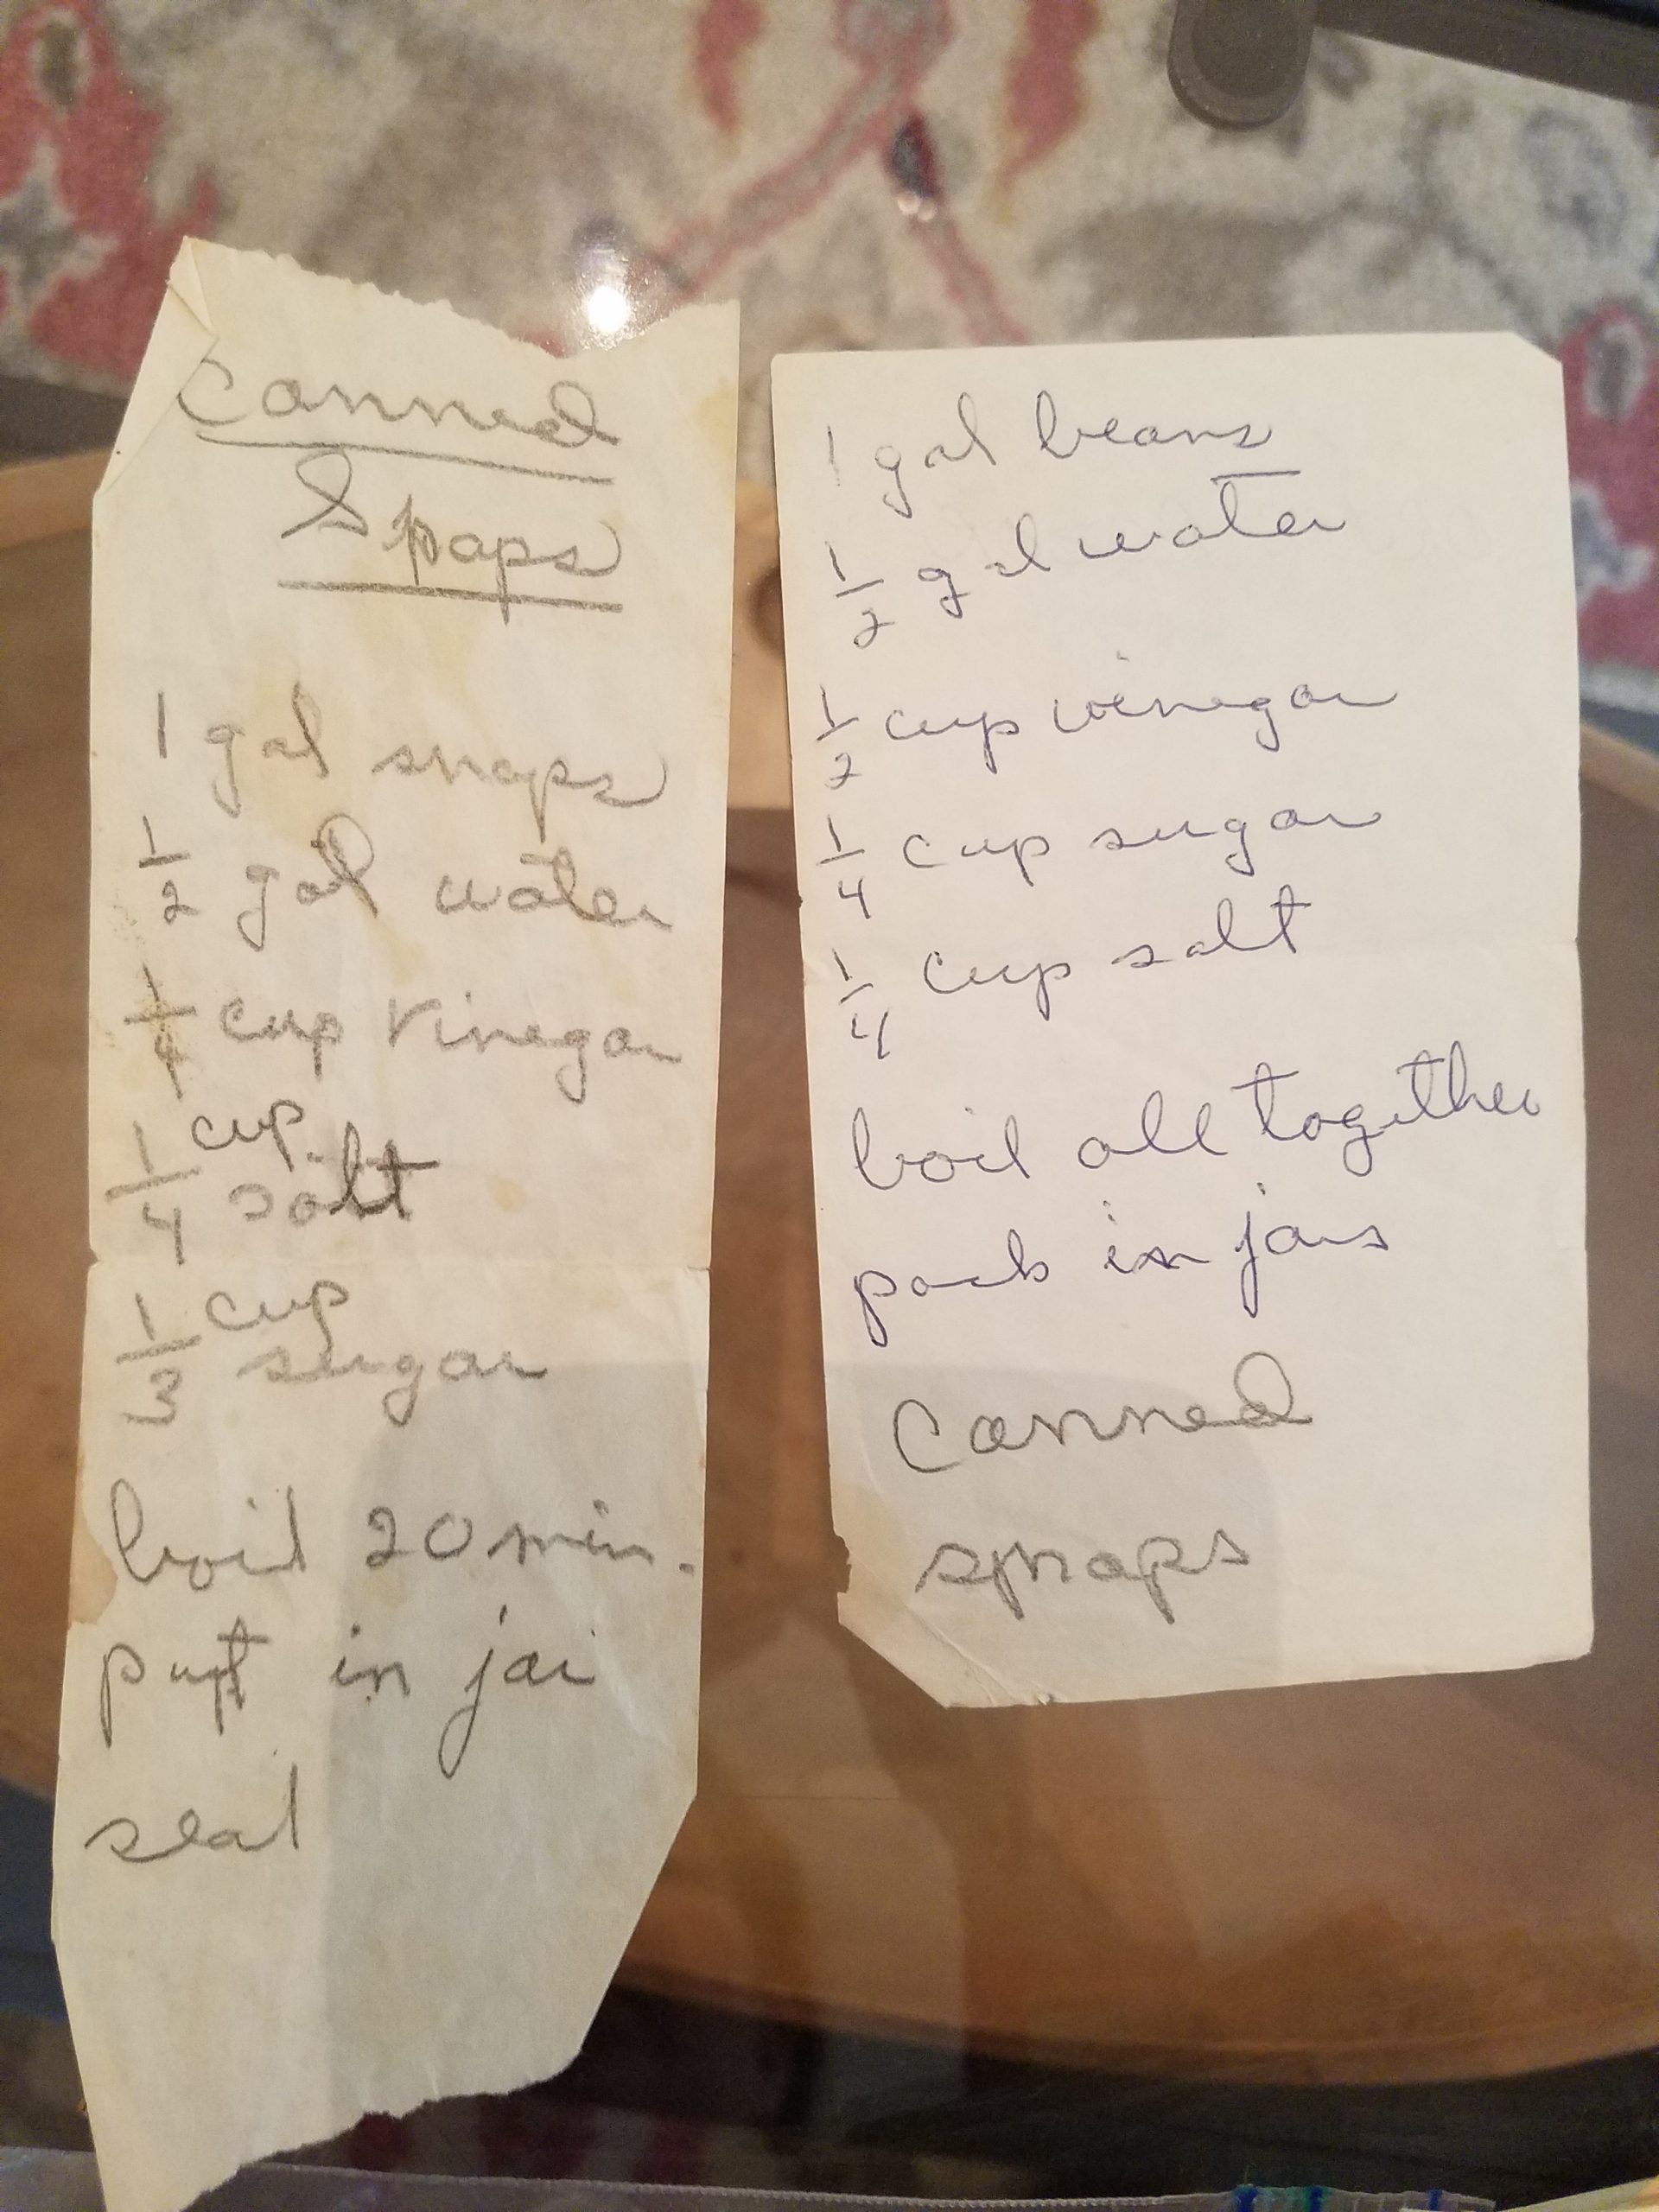 Canned
Snaps
1 gal snaps
1/2 gal water
1/4 cup vinegar
1/4 cup
salt
1/3 cup
sugar
boil 20 min.
put in jar
seal
1 gal beans
1/2 gal water
1/2 cup vinegar
1/4 cup sugar
1/4 cup salt
boil all together
pack in jars
Canned
snaps